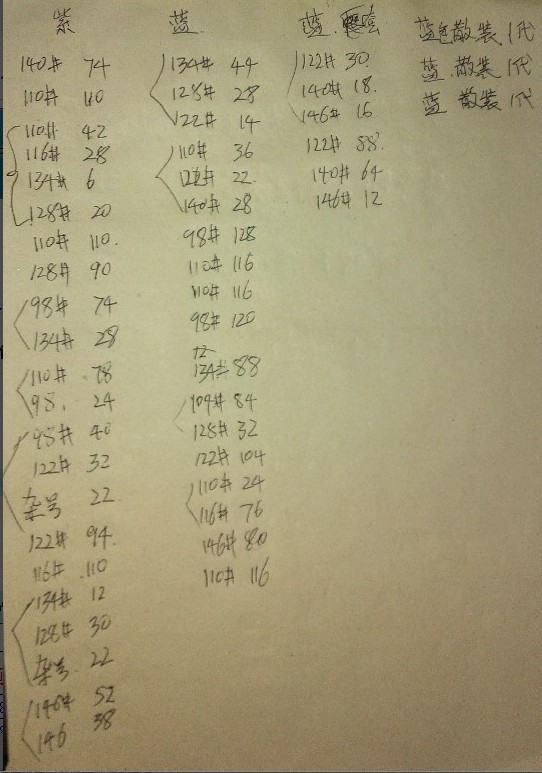 紫
140# 74
110# 110
110# 42
116# 28
134# 6
128# 20
110# 110.
128# 90
98# 74
134# 28
110# 78
98. 24
98# 40
122# 32
杂号 22
122# 94.
116# 110
134# 12
128# 30
杂号. 22
146# 52
146 38
蓝.
134# 44
128# 28
122# 14
110# 36
122# 22
140# 28
98# 128
110# 116
110# 116
98# 120
134# 88
104# 84
128# 32
122# 104
110# 24
116# 76
146# 80
110# 116
蓝.
122# 30.
140# 18.
146# 16
122# 88.
140# 64
146# 12
蓝色散装 1代
蓝.散装 1代
蓝 散装 1代